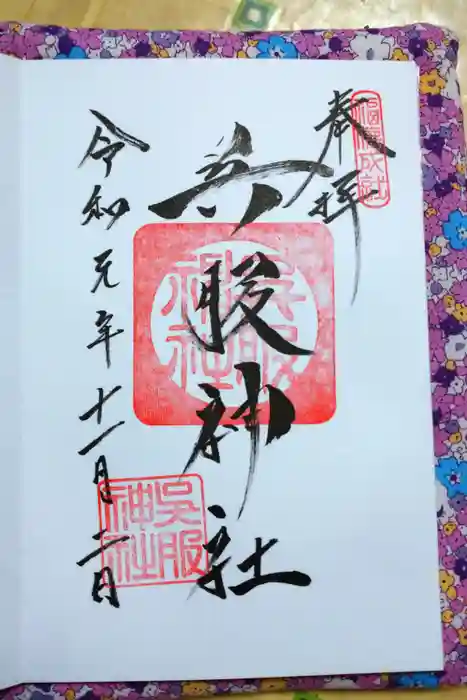 奉拝
呉服神社
令和元年十一月二日
呉服
神社
呉服
神社